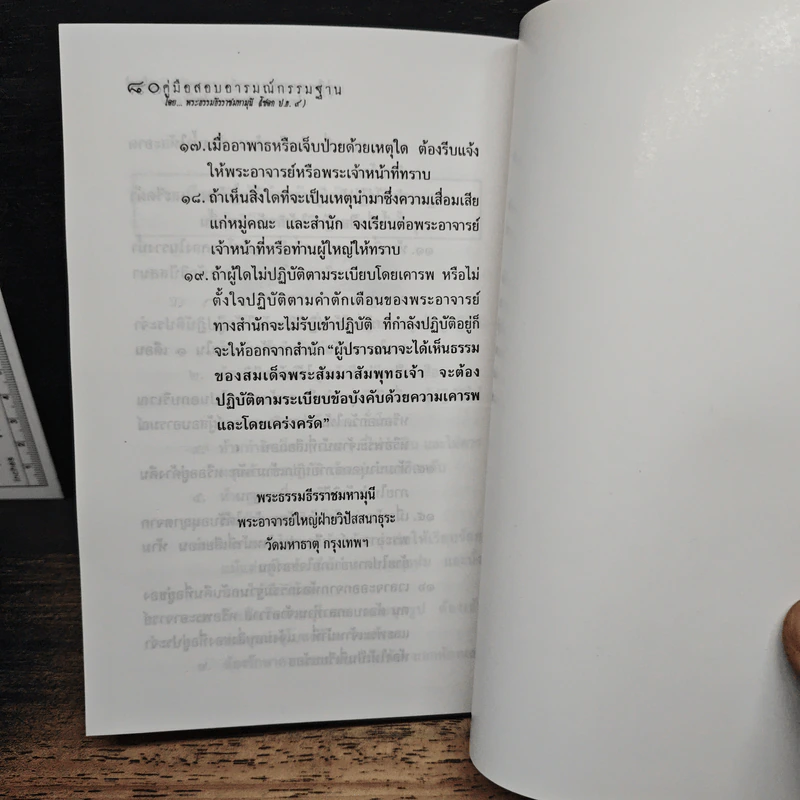 ๘๐ คู่มือสอบอารมณ์กรรมฐาน
โดย... พระธรรมธีรราชมหามุนี (โชดก ป.ธ. ๙)
๑๗. เมื่ออาพาธหรือเจ็บป่วยด้วยเหตุใด ต้องรีบแจ้ง
ให้พระอาจารย์หรือพระเจ้าหน้าที่ทราบ
๑๘. ถ้าเห็นสิ่งใดที่จะเป็นเหตุนำมาซึ่งความเสื่อมเสีย
แก่หมู่คณะ และสำนัก จงเรียนต่อพระอาจารย์
เจ้าหน้าที่หรือท่านผู้ใหญ่ให้ทราบ
๑๙. ถ้าผู้ใดไม่ปฏิบัติตามระเบียบโดยเคารพ หรือไม่
ตั้งใจปฏิบัติตามคำตักเตือนของพระอาจารย์
ทางสำนักจะไม่รับเข้าปฏิบัติ ที่กำลังปฏิบัติอยู่ก็
จะให้ออกจากสำนัก “ผู้ปรารถนาจะได้เห็นธรรม
ของสมเด็จพระสัมมาสัมพุทธเจ้า จะต้อง
ปฏิบัติตามระเบียบข้อบังคับด้วยความเคารพ
และโดยเคร่งครัด”
พระธรรมธีรราชมหามุนี
พระอาจารย์ใหญ่ฝ่ายวิปัสสนาธุระ
วัดมหาธาตุ กรุงเทพฯ